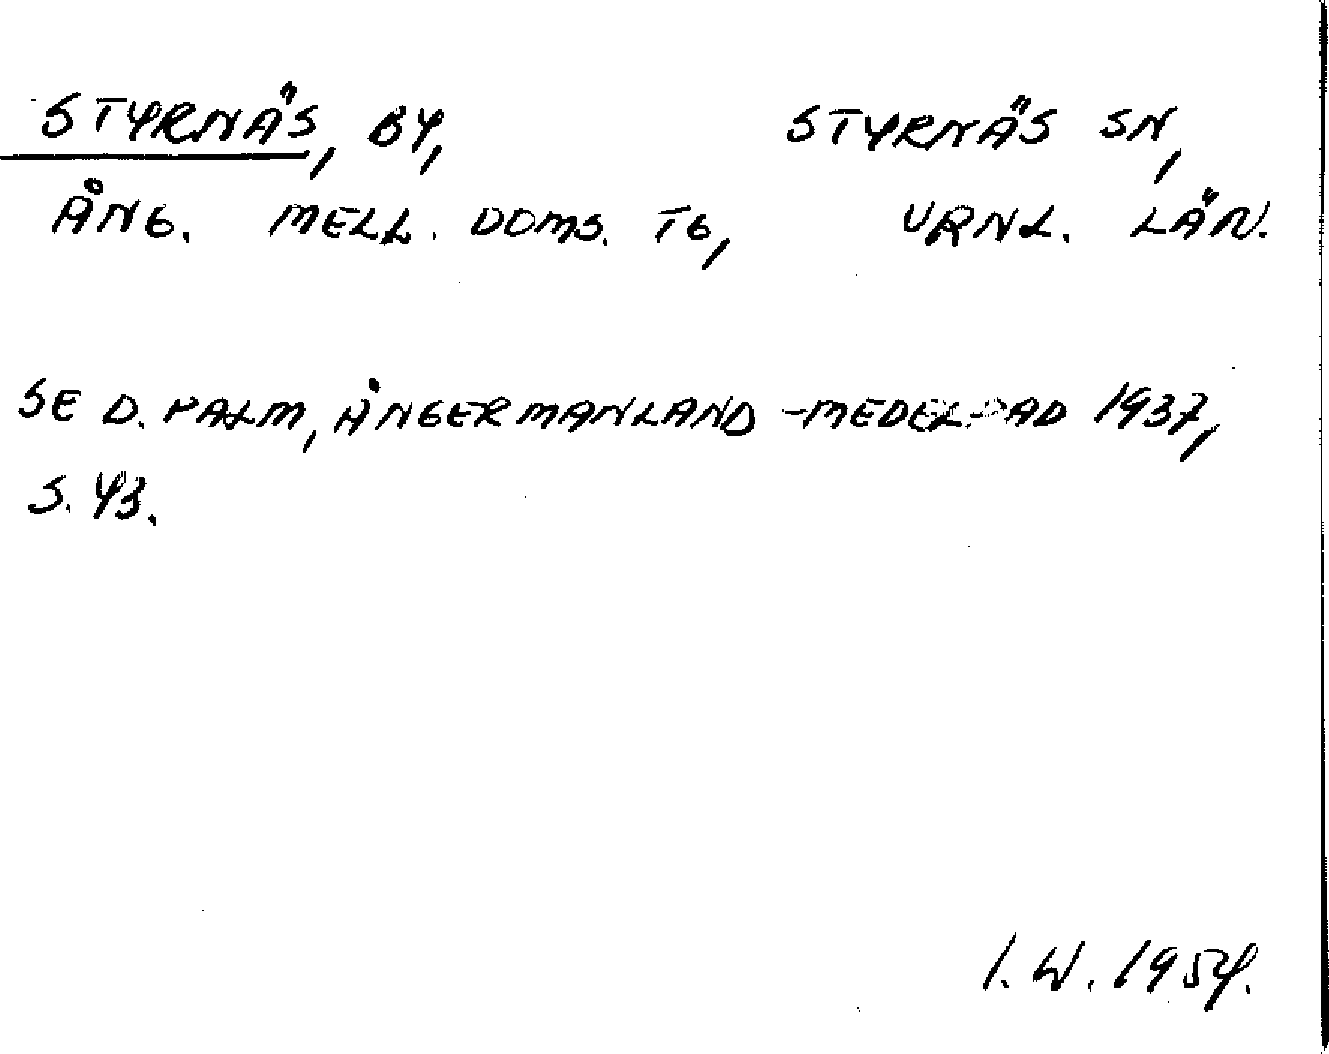 STYRNÄS, BY, STYRNÄS SN,
ÅNG. MELL. DOMS. TG, VRNL. LÄN.
SE D. PALM, ÅNGERMANLAND-MEDELPAD 1937,
S. 43.
I.W. 1954.